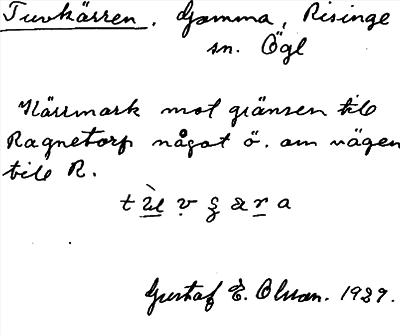 Tuvkärren, Gamma, Risinge
sn. Ögl
Kärrmark mot gränsen till
Ragnetorp något ö. om vägen
till R.
Gustaf E. Olsson. 1929.